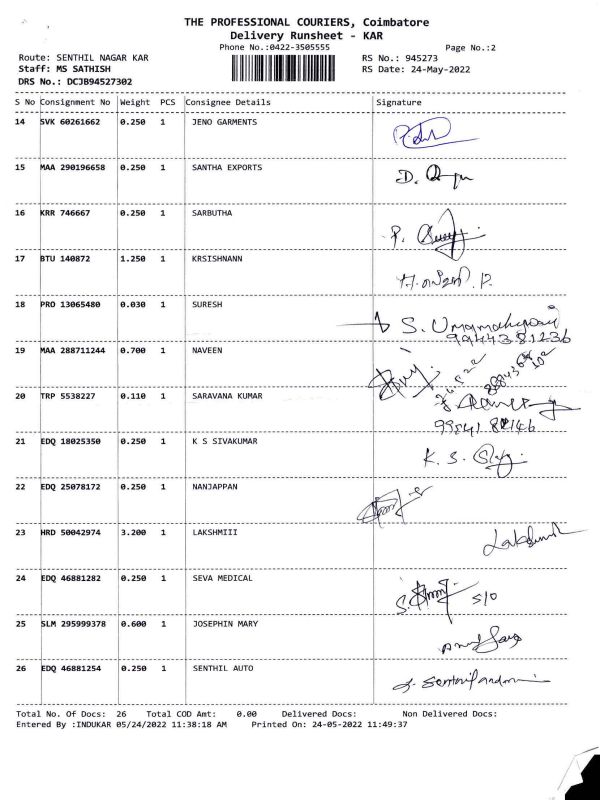 THE PROFESSIONAL COURIERS, Coimbatore
Delivery Runsheet - KAR
Phone No.:0422-3505555
Page No.:2
Route: SENTHIL NAGAR KAR
RS No.: 945273
Staff: MS SATHISH
RS Date: 24-May-2022
DRS No.: DCJB94527302
S No Consignment No Weight PCS Consignee Details Signature
14 SVK 60261662 0.250 1 JENO GARMENTS
15 MAA 290196658 0.250 1 SANTHA EXPORTS D.
16 KRR 746667 0.250 1 SARBUTHA P.
17 BTU 140872 1.250 1 KRSISHNANN
18 PRO 13065480 0.030 1 SURESH S.
9944381236
19 MAA 288711244 0.700 1 NAVEEN
20 TRP 5538227 0.110 1 SARAVANA KUMAR
21 EDQ 18025350 0.250 1 K S SIVAKUMAR K. S.
22 EDQ 25078172 0.250 1 NANJAPPAN
23 HRD 50042974 3.200 1 LAKSHMIII
24 EDQ 46881282 0.250 1 SEVA MEDICAL S/O
25 SLM 295999378 0.600 1 JOSEPHIN MARY
26 EDQ 46881254 0.250 1 SENTHIL AUTO
Total No. Of Docs: 26 Total COD Amt: 0.00 Delivered Docs: Non Delivered Docs:
Entered By :INDUKAR 05/24/2022 11:38:18 AM Printed On: 24-05-2022 11:49:37